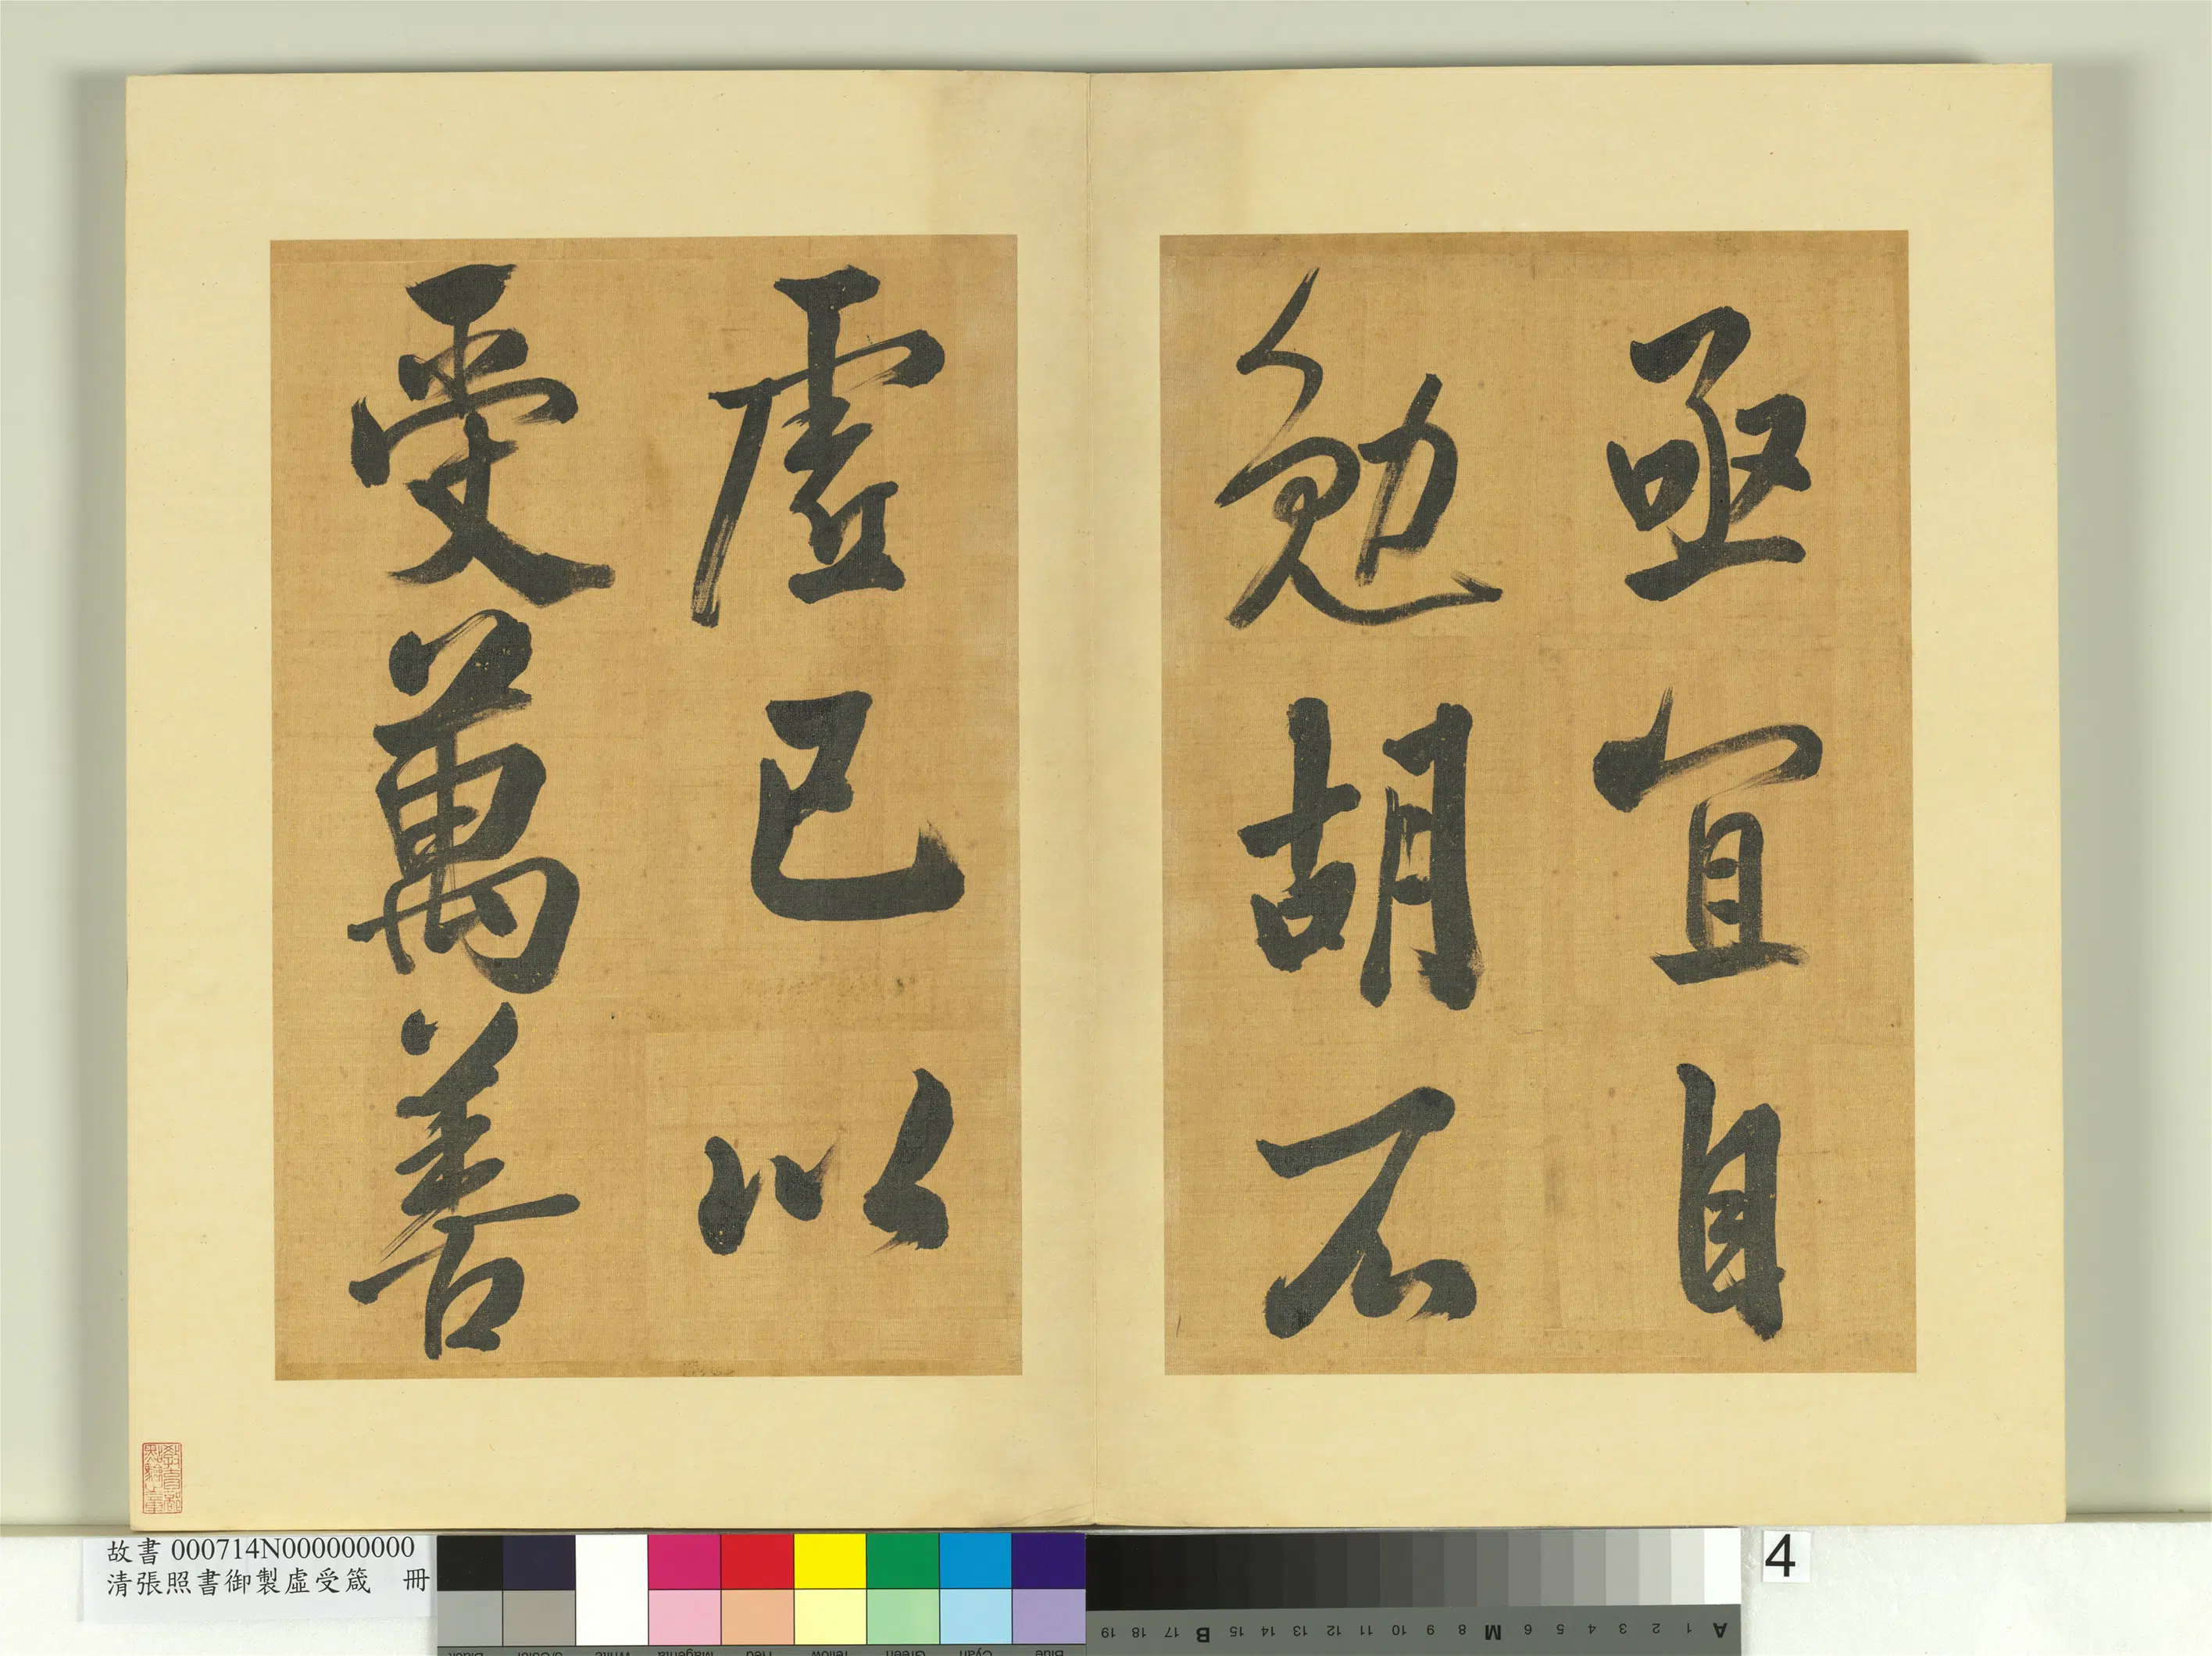 亟宜自
勉胡不
虛己以
受萬善
故書 000714N000000000
清張照書御製虛受箴 冊
4
A 1 2 3 4 5 6 M 8 9 10 11 12 13 14 15 B 17 18 19
Blue Cyan Green Yellow Red Magenta White 3/Color Black